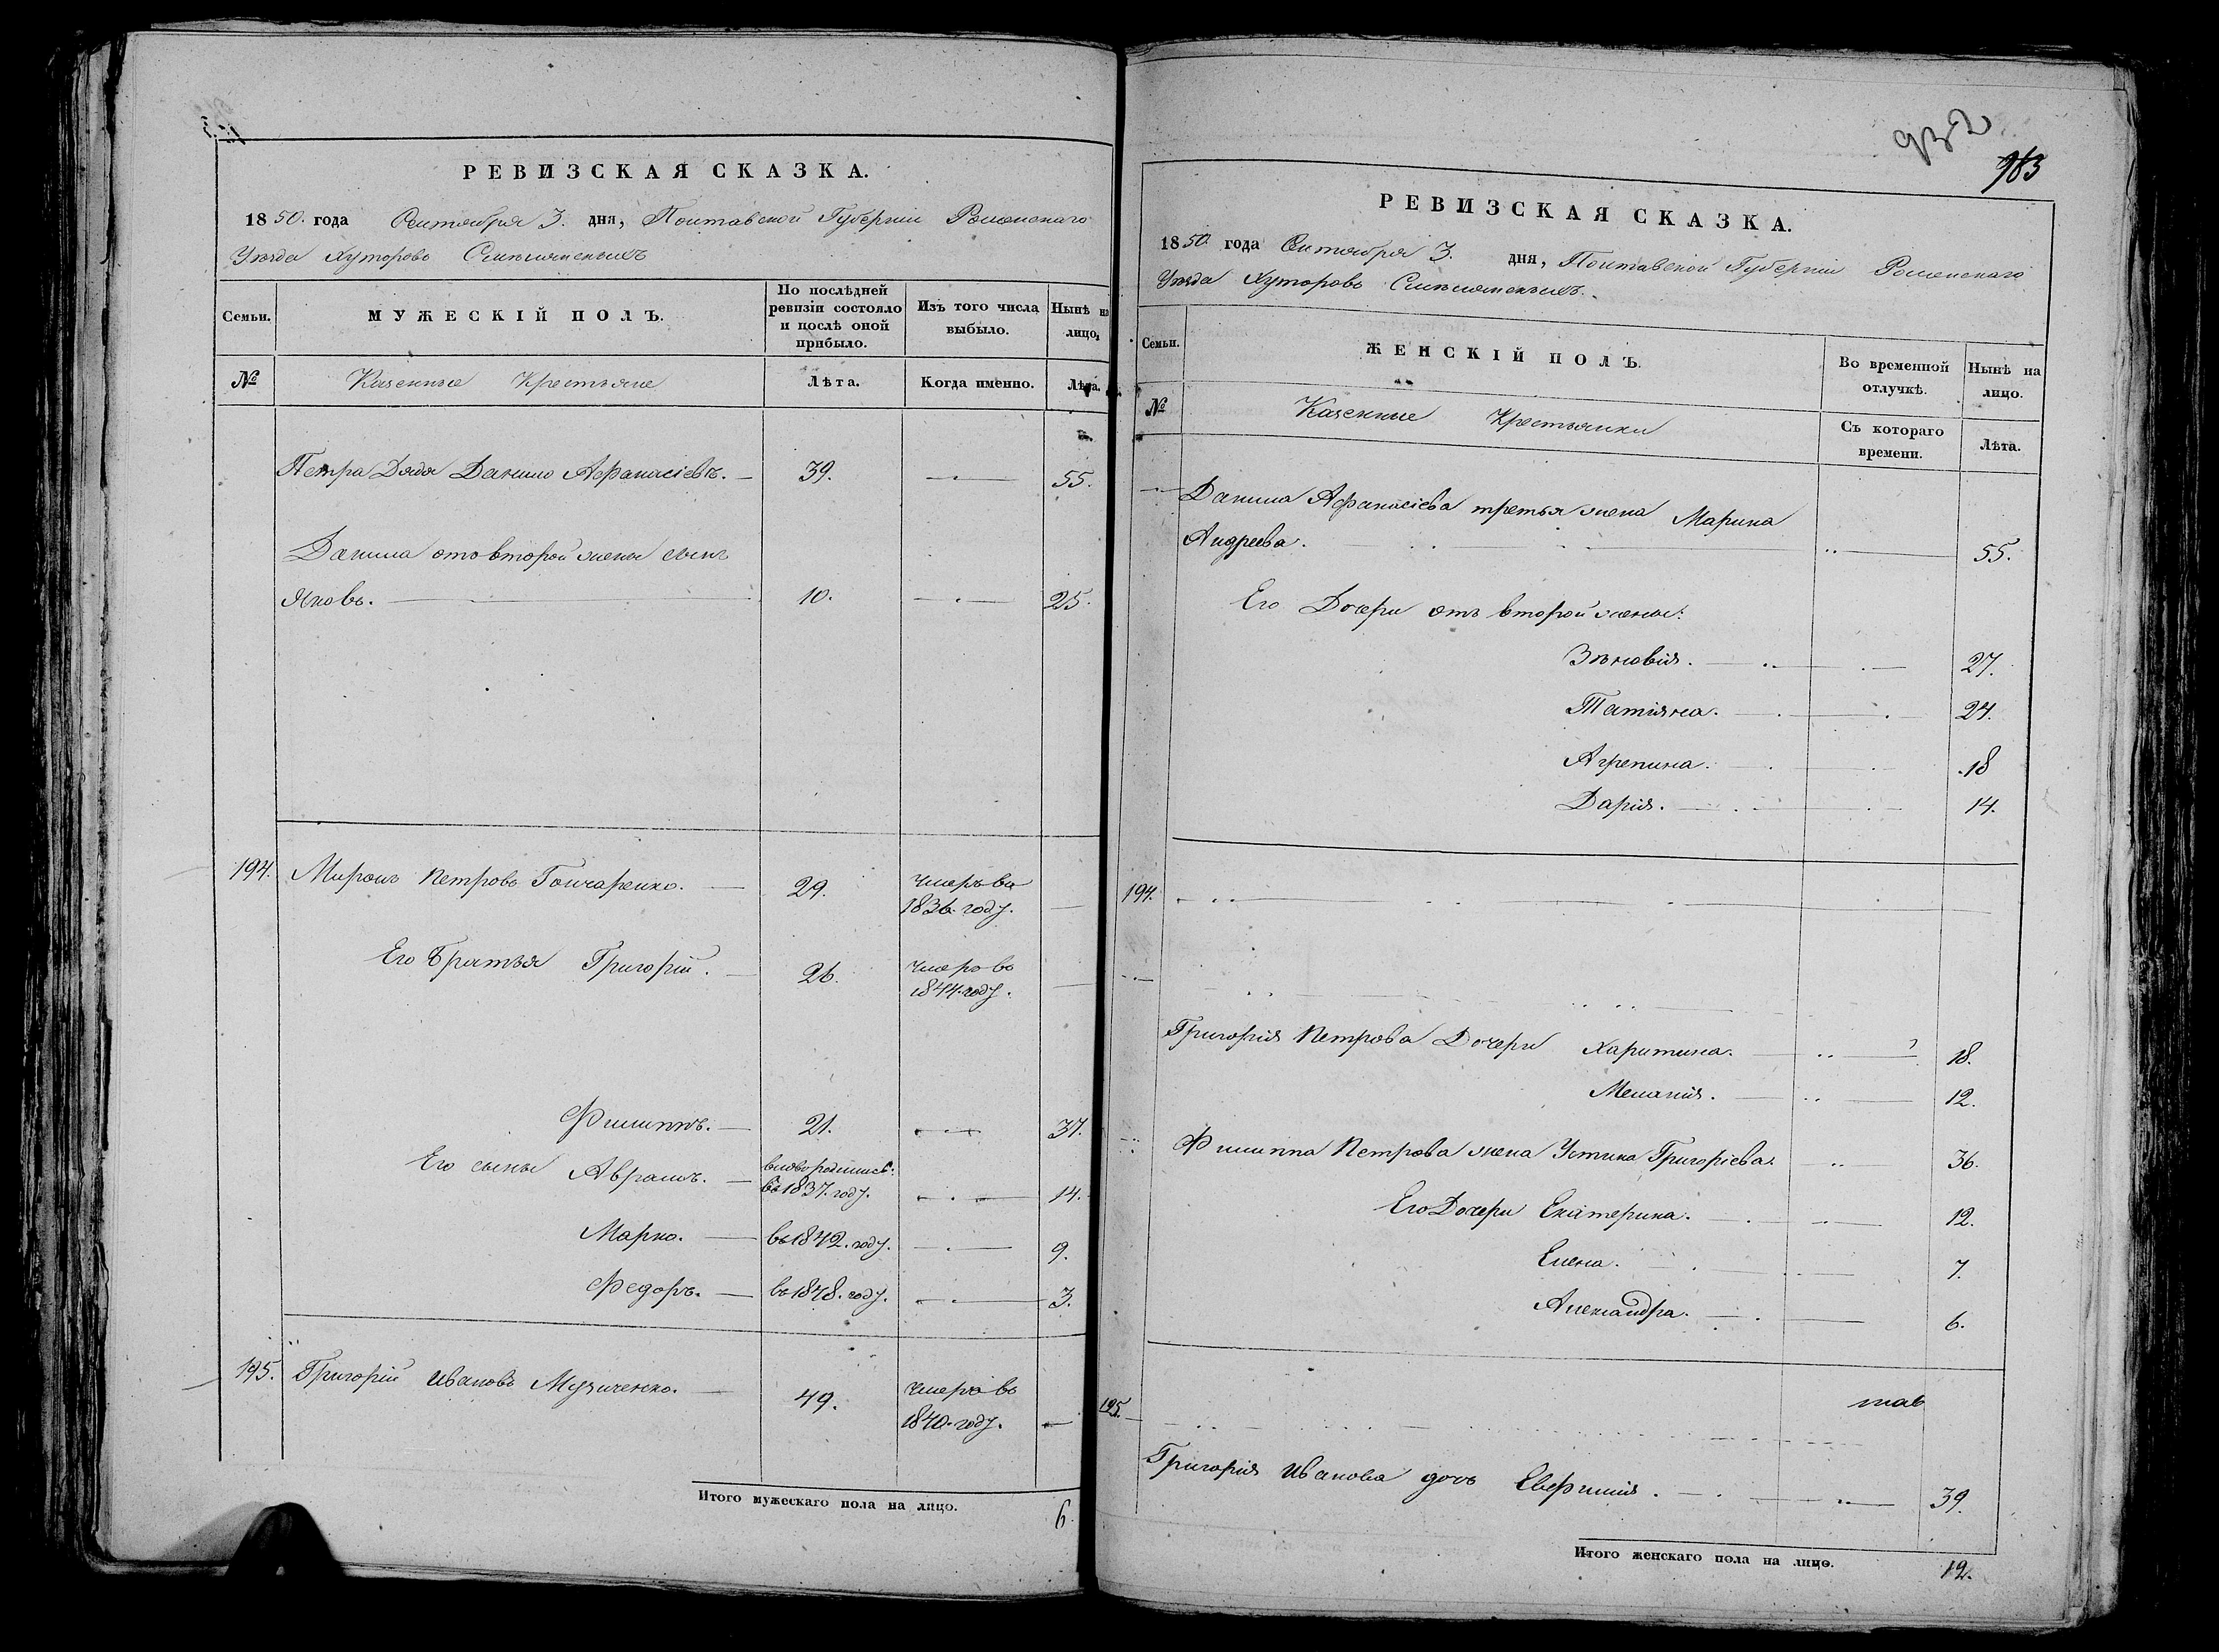 РЕВИЗСКАЯ СКАЗКА.
1850. года Октября 3. дня, Полтавской Губерніи Роменскаго
Уѣзда Хуторовъ
Семьи.
МУЖЕСКІЙ ПОЛЪ.
По послѣдней ревизіи состояло и послѣ оной прибыло.
Изъ того числа выбыло.
Нынѣ на лицо.
№
Казенные Крестьяне
Лѣта.
Когда именно.
Лѣта.
Петра Дядя Данило Афанасіевъ. 39. 55.
Данила отъ второй жены сынъ
Яковъ. 10. 25.
194. Миронъ Петровъ Гончаренко. 29. умеръ въ
1836. году.
Его Братья Григорій. 26. умеръ въ
1844. году.
Филиппъ. 21. 37.
Его сыны Аврамъ. вновь родились:
въ 1837. году. 14.
Марко. въ 1842. году. 9.
Федоръ. въ 1848. году. 3.
195. Григорій Ивановъ Музиченко. 49. умеръ въ
1840. году.
Итого мужескаго пола на лицо. 6.
932
983
РЕВИЗСКАЯ СКАЗКА.
1850 года Октября 3. дня, Полтавской Губерніи Роменскаго
Уѣзда Хуторовъ
Семьи.
ЖЕНСКІЙ ПОЛЪ.
Во временной отлучкѣ.
Нынѣ на лицо.
№
Казенные Крестьянки
Съ котораго времени.
Лѣта.
Данила Афанасіева третья жена Марина
Андреева. 55.
Его Дочери отъ второй жены:
Зѣновія. 27.
Татіяна. 24.
Агрепина. 18
Дарія. 14.
194.
Григорія Петрова Дочери Харитина. 18.
Меланія. 12.
Филиппа Петрова жена Устина Григоріева. 36.
Его Дочери Екатерина. 12.
Елена. 7.
Александра. 6.
195.
Григорія Иванова дочь Евфимія. 39.
Итого женскаго пола на лицо. 12.